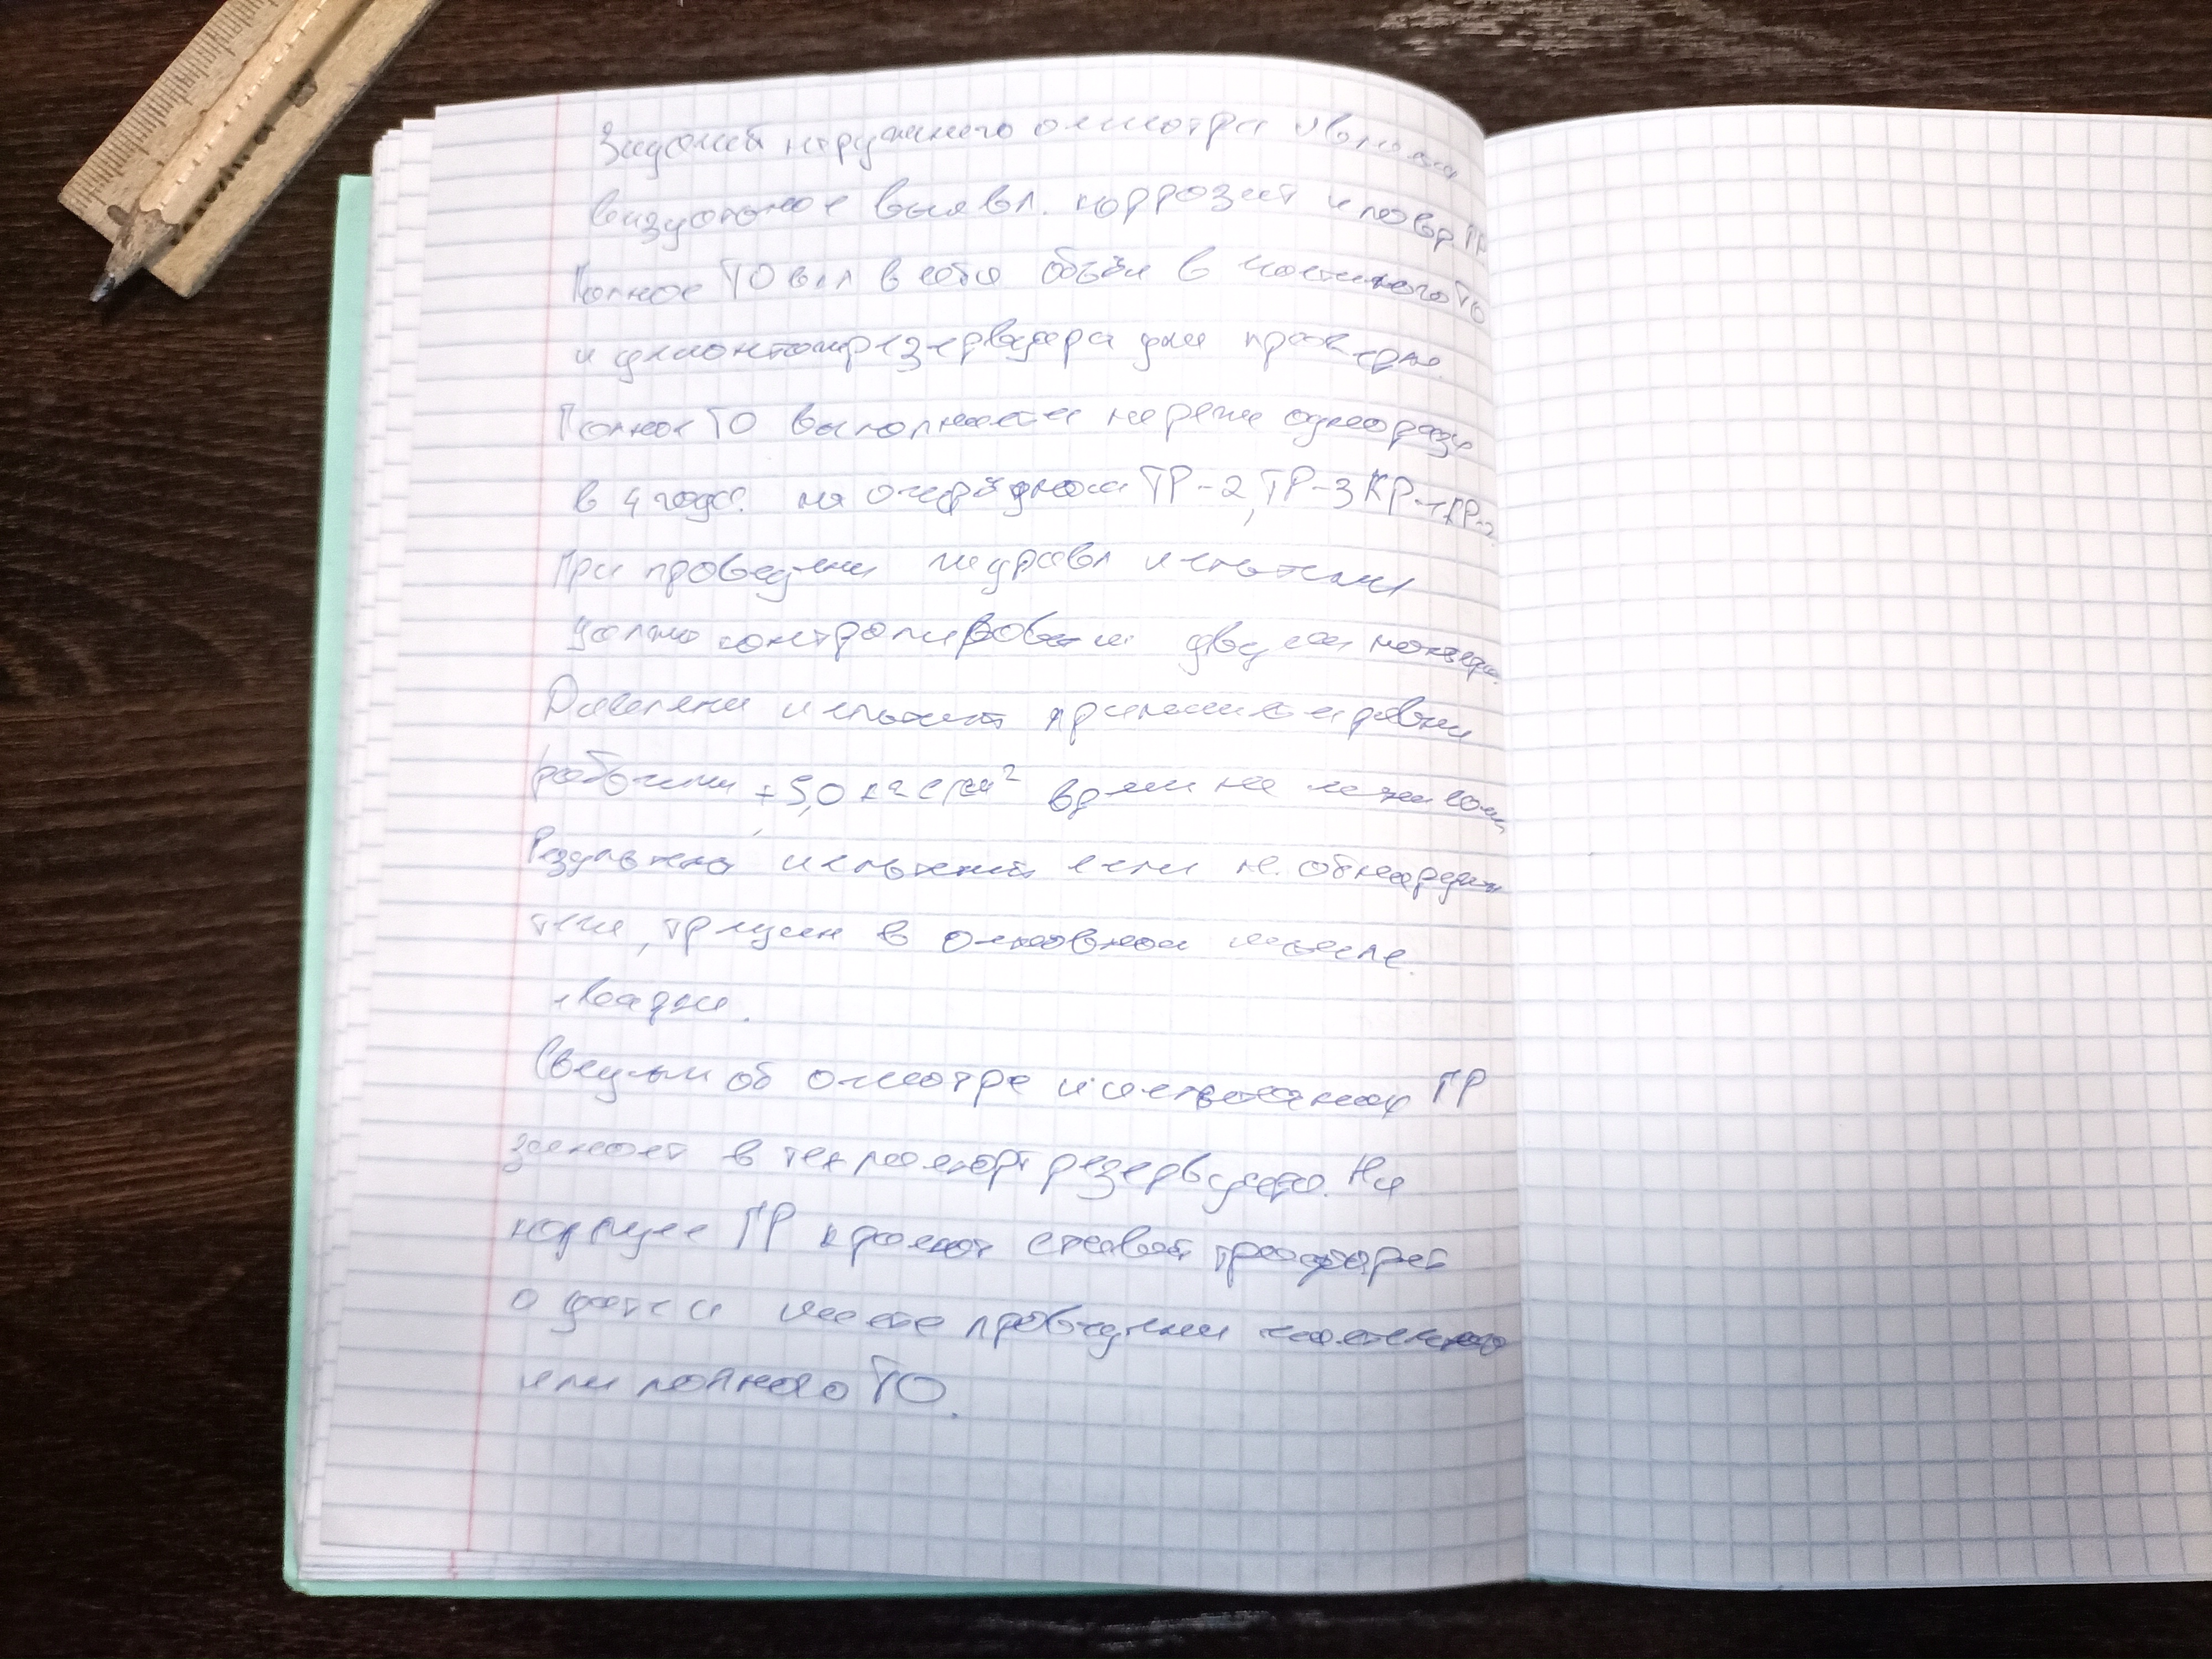 Задачей наружнего осмотра явл
визуальное выявл. коррозий и повр ГР
Полное ТО вкл в себя объём в частичного ТО
и демонтаж резервуара для проверки.
Полное ТО выполняется не реже одного раза
в 4 года. на очередном ТР-2, ТР-3 КР-1 КР-2
При проведении гидравл испытаний
должно контролироваться двумя
Давления испытат принимается равным
рабочим + 5,0 кгс/см² врем не менее
Результат испытаний если не обнаружен
течи, трещин в основном металле.
сварки.
Сведения об осмотре и испытаниях ГР
заносят в техпаспорт резервуара. На
корпусе ГР краской ставят трафарет
о дате и месте проведения частичного
или полного ТО.